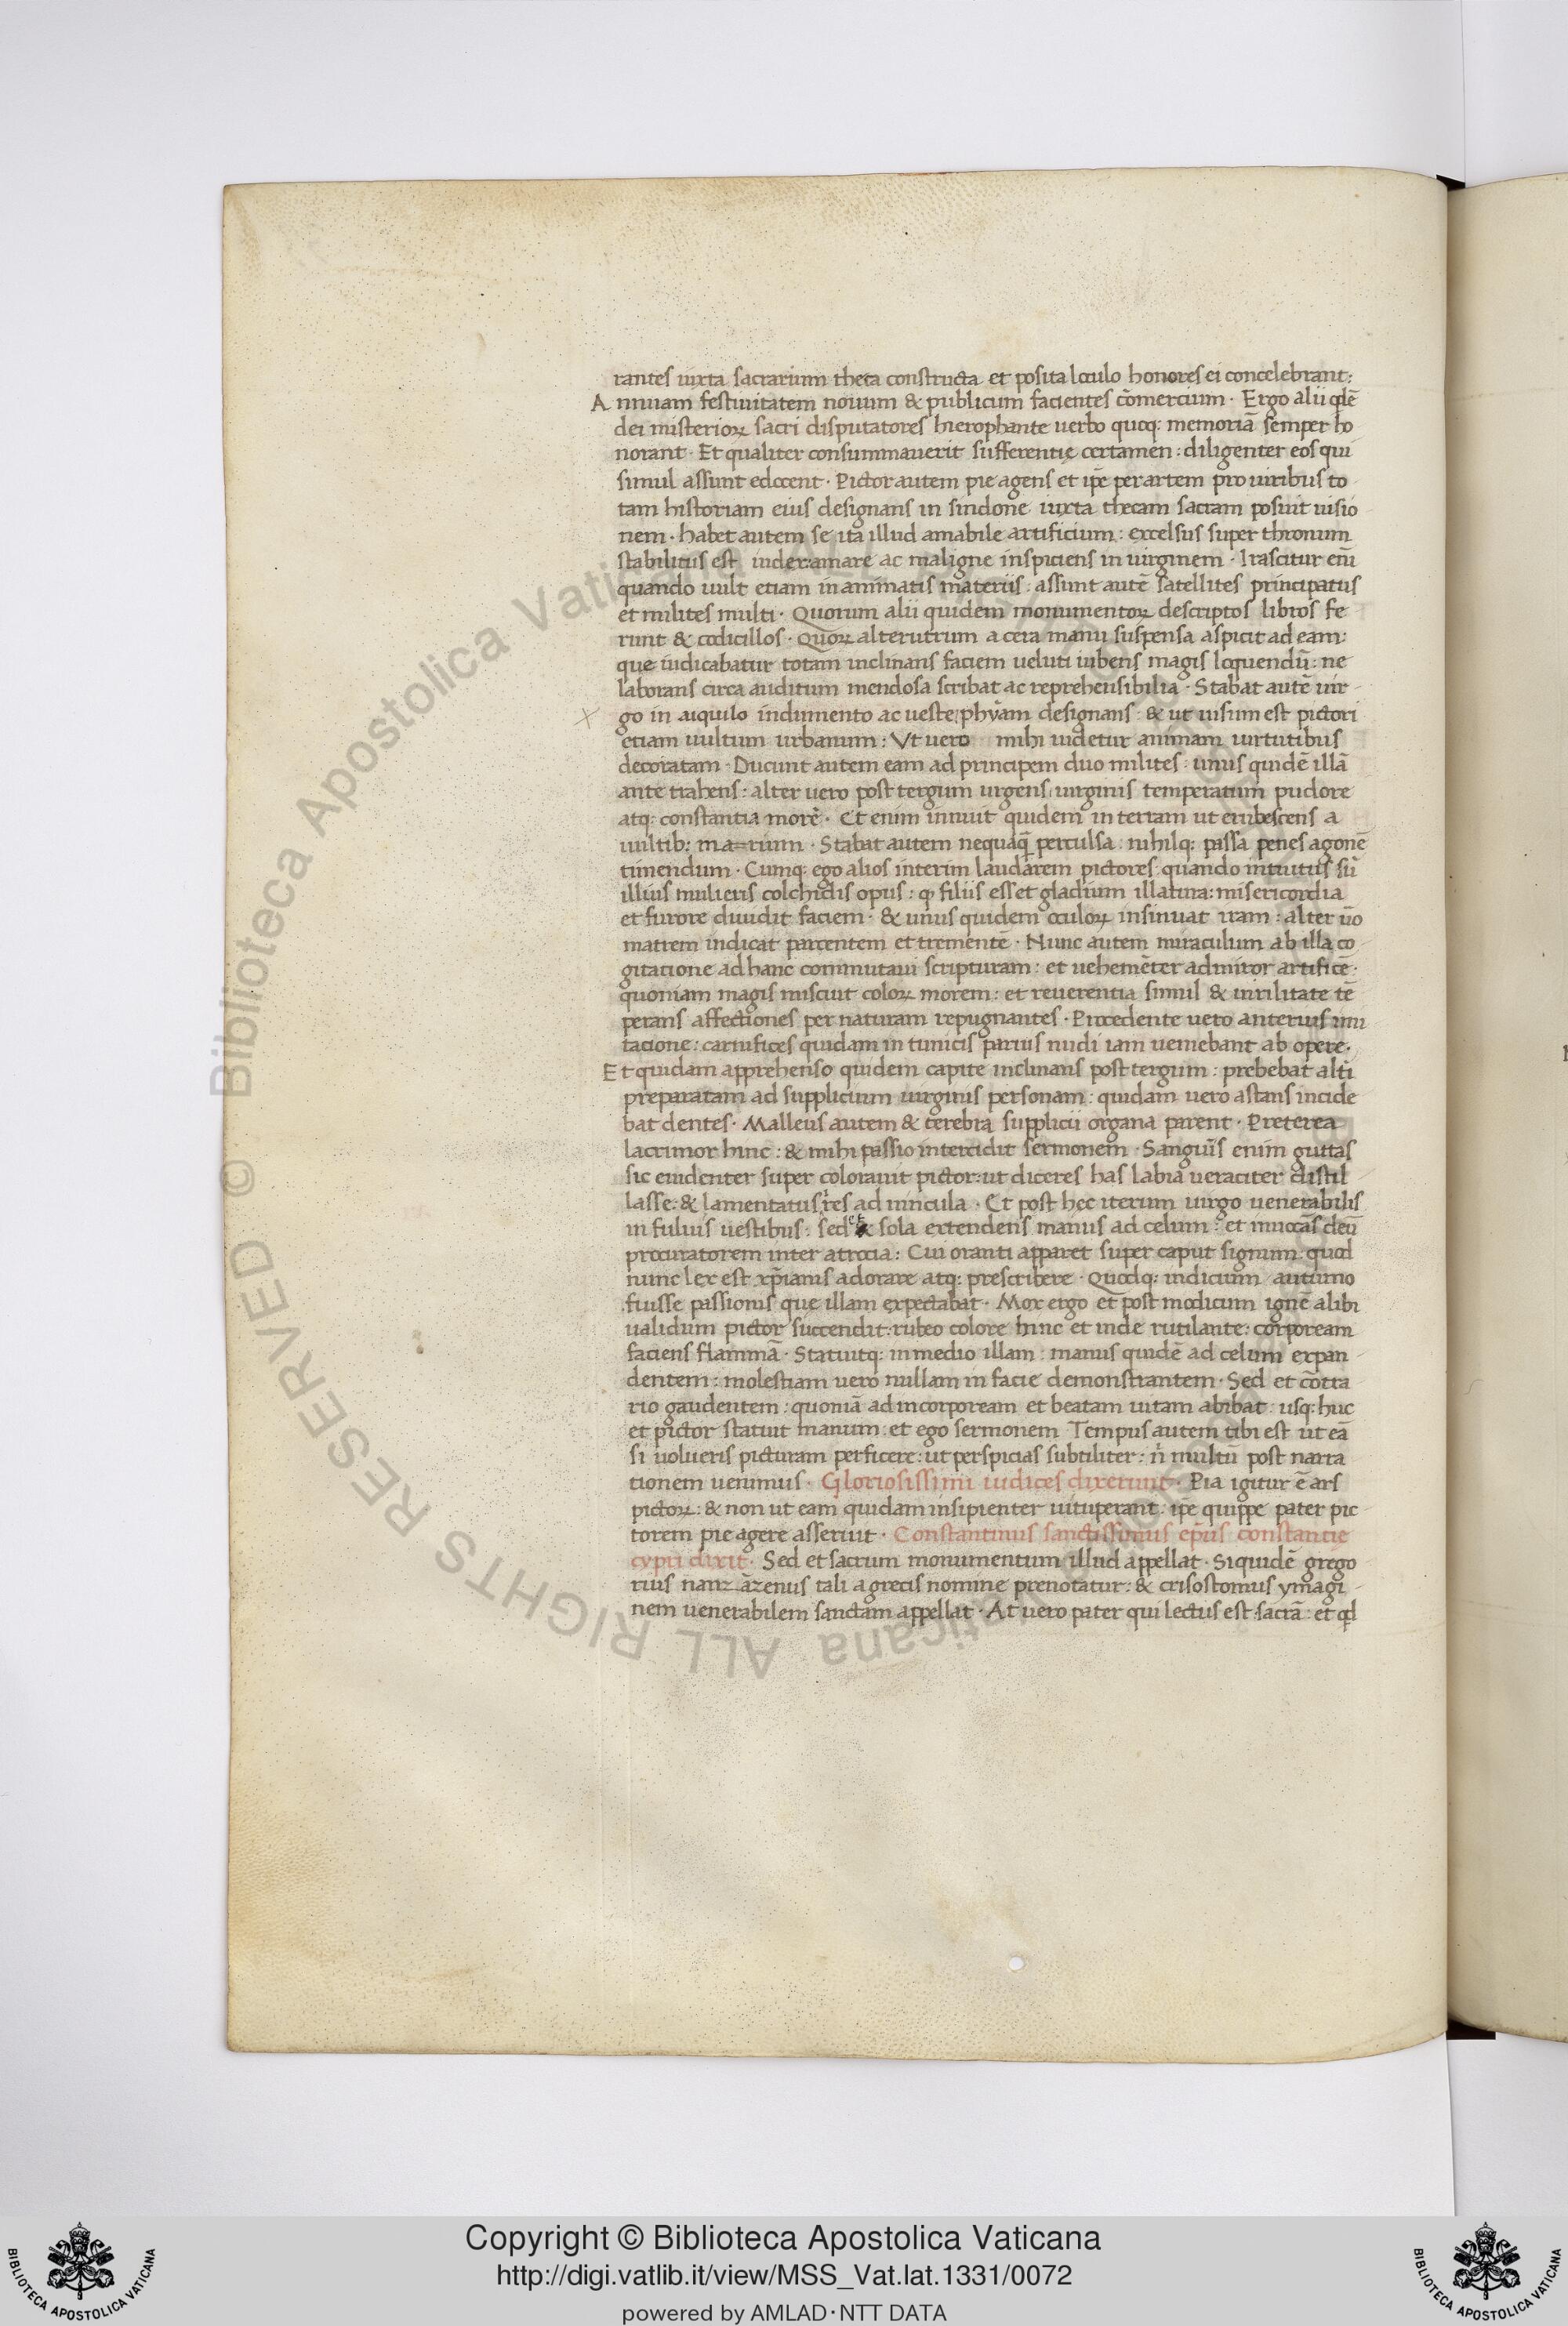 rantes iuxta sacrarium theca constructa et posita loculo honores ei concelebrant:
Annuam festiuitatem nouum & publicum facientes cōmercium · Ergo alii qdē
dei misterioꝝ sacri disputatores hierophante uerbo quoq: memoriā semper ho
norant · Et qualiter consummauerit sufferentię certamen : diligenter eos qui
simul assunt edocent · Pictor autem pie agens et ip̄e per artem pro uiribus to
tam historiam eius designans in sindone iuxta thecam sacram posuit uisio
nem · habet autem se ita illud amabile artificium : excelsus super thronum
stabilitus est iudex:amare ac maligne inspiciens in uirginem · Irascitur eni᷑
quando uult etiam in animatis materiis : assunt autē satellites principatus
et milites multi · Quorum alii quidem monumentoꝝ descriptos libros fe
runt & codicillos · Quoꝝ alterutrum a cera manu suspensa aspicit ad eam:
que iudicabatur totam inclinans faciem ueluti iubens magis loquendū : ne
laborans circa auditum mendosa scribat ac reprehensibilia · Stabat autē uir
go in aiquilo indumento ac ueste phyām designans : & ut uisum est pictori
etiam uultum urbanum : Vt uero mihi uidetur animam uirtutibus
decoratam · Ducunt autem eam ad principem duo milites : unus quidē illā
ante trahens : alter uero post tergum urgens uirginis temperatum pudore
atq: constantia morē · Et enim innuit quidem in terram ut erubescens a
uultib: ma=rium · Stabat autem nequaq̄ perculsa : nihilq: passa penes agonē
timendum · Cumq: ego alios interim laudarem pictores : quando intuitus sū
illius mulieris colchidis opus : ꝙ filiis esset gladium illatura: misericordia
et furore diuidit faciem · & unus quidem oculoꝝ insinuat iram : alter ūo
matrem indicat parcentem et trementē · Nunc autem miraculum ab illa co
gitatione ad hanc commutaui scripturam : et uehemēter admiror artificē:
quoniam magis miscuit coloꝝ morem : et reuerentia simul & uirilitate tē
perans affectiones per naturam repugnantes · Procedente uero anterius imi
tacione : carnifices quidam in tunicis paruis nudi iam ueniebant ab opere·
Et quidam apprehenso quidem capite inclinans post tergum : prebebat alt̄i
preparatam ad supplicium uirginis personam : quidam uero astans incide
bat dentes · Malleus autem & terebra supplicii organa parent · Preterea
lacrimor hinc : & mihi passio intercidit sermonem · Sanguīs enim guttas
sic euidenter super colorauit pictor:ut diceres has labia ueraciter distil
lasse: & lamentatus res ad uincula · Et post hec iterum uirgo uenerabilis
in fuluis uestibus : sed et sola extendens manus ad celum : et inuocās deū
procuratorem inter atrocia : Cui oranti apparet super caput signum quod
nunc lex est xp̄ianis adorare atq: prescribere · Quodq: indicium autumo
fuisse passionis que illam expectabat · Mox ergo et post modicum ignē alibi
ualidum pictor succendit:rubeo colore hinc et inde rutilante: corpoream
faciens flammā · Statuitq: in medio illam : manus quidē ad celum expan
dentem : molestiam uero nullam in facie demonstrantem · Sed et cōtra
rio gaudentem : quoniā ad incorpoream et beatam uitam abibat : usq: huc
et pictor statuit manum : et ego sermonem · Tempus autem tibi est ut eā
si uolueris picturam perficere : ut perspicias subtiliter : n̄ multū post narra
tionem uenimus · Gloriosissimi iudices dixerunt · Pia igitur ē ars
pictoꝝ : & non ut eam quidam insipienter uituperant : ip̄e quippe pater pic
torem pie agere asseruit · Constantinus sanctissimus ep̄us constantie
cypri dixit · Sed et sacrum monumentum illud appellat · Siquidē grego
rius nanzāzenus tali a grecis nomine prenotatur : & crisostomus ymagi
nem uenerabilem sanctam appellat · At uero pater qui lectus est sacrā : et qd
Copyright © Biblioteca Apostolica Vaticana
http://digi.vatlib.it/view/MSS_Vat.lat.1331/0072
powered by AMLAD·NTT DATA
BIBLIOTECA APOSTOLICA VATICANA
BIBLIOTECA APOSTOLICA VATICANA
© Biblioteca Apostolica Vaticana ALL RIGHTS RESERVED